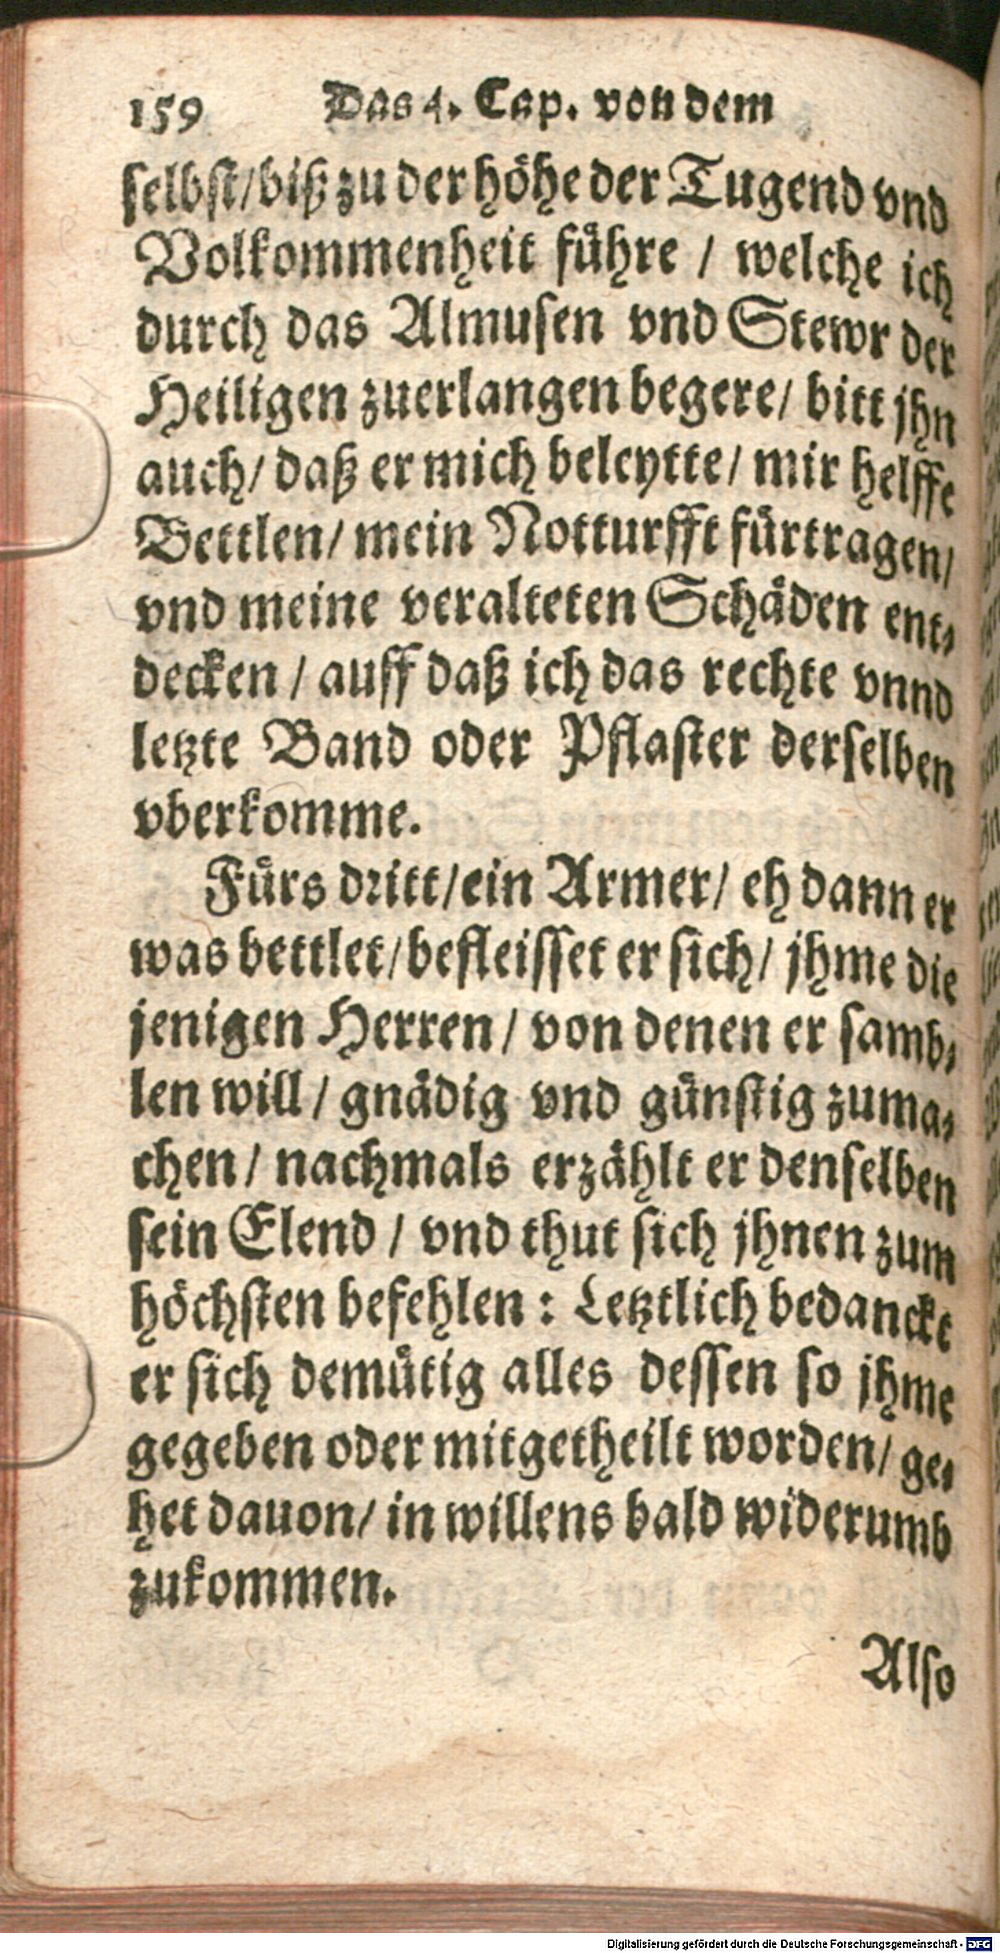 159 Das 4. Cap. von dem
selbst/biß zu der höhe der Tugend vnd
Volkommenheit führe / welche ich
durch das Almusen vnd Stewr der
Heiligen zuerlangen begere/ bitt jhn
auch/ daß er mich beleytte/ mir helffe
Bettlen/ mein Notturfft fürtragen/
vnd meine veralteten Schäden ent-
decken / auff daß ich das rechte vnnd
letzte Band oder Pflaster derselben
vberkomme.
Fürs dritt/ein Armer/ eh dann er
was bettlet/befleisset er sich/ jhme die
jenigen Herren/ von denen er samb-
len will / gnädig vnd günstig zuma-
chen/ nachmals erzählt er denselben
sein Elend / vnd thut sich jhnen zum
höchsten befehlen : Letztlich bedanckt
er sich demütig alles dessen so jhme
gegeben oder mitgetheilt worden/ ge-
het dauon/ in willens bald widerumb
zukommen.
Also
Digitalisierung gefördert durch die Deutsche Forschungsgemeinschaft - DFG